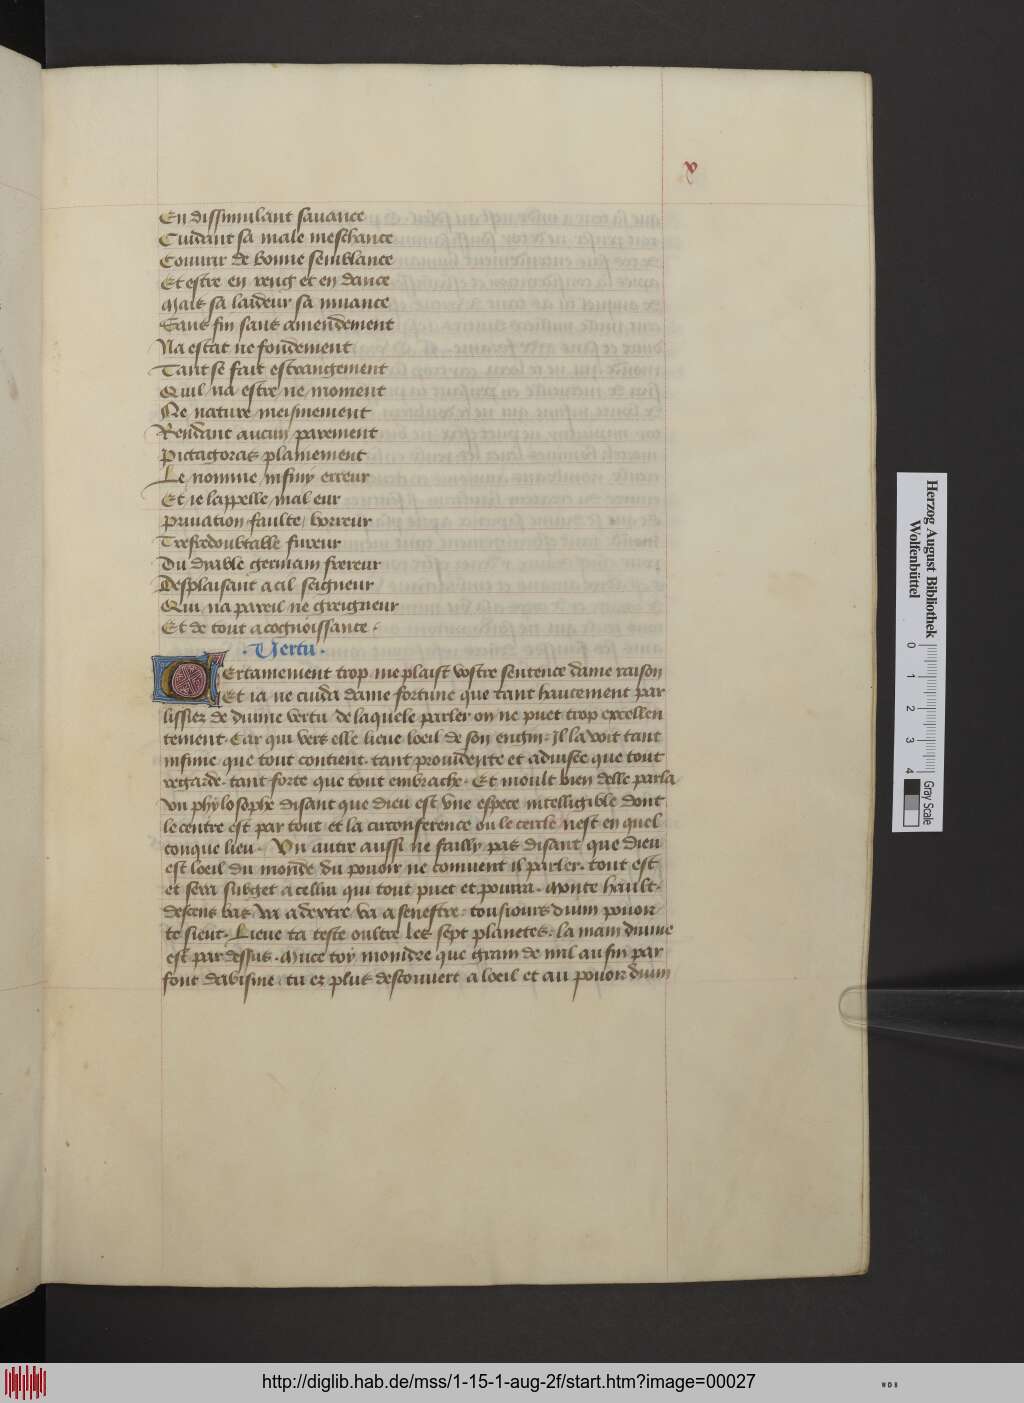 v
En dissimulant sauance
Cuidant sa male meschance
Couurir de bonne semblance
Et estre en reng et en dance
Mais sa laideur sa nuance
Sans fin sans amendement
Na estat ne fondement
Tant se fait estrangement
Quil na estre ne moment
Ne nature meismement
Rendant aucun parement
Pictagoras plainement
Le nomme infiny erreur
Et ie lappelle mal eur
Priuation faulte horreur
Tresredoubtable fureur
Du dyable germain frereur
Desplaisant a cil seigneur
Qui na pareil ne greigneur
Et de tout a cognoissance.
.Vertu.
Certainement trop me plaist vostre sentence dame raison
Et ia ne cuida dame fortune que tant haultement par
lissiez de diuine vertu de laquele parler on ne puet trop excellen
tement. Car qui vers elle lieue loeil de son engin. Il la voit tant
infinie que tout contient. tant prouidente et aduisee que tout
regarde. tant forte que tout embrache. Et moult bien delle parla
vn phylosophe disant que dieu est vne espece intelligible dont
le centre est par tout et la circonference ou le cercle nest en quel
conque lieu. Vn autre aussi ne failly pas disant que dieu
est loeil du monde du pouoir ne conuient il parler. tout est
et sera subget a cellui qui tout puet et pourra. Monte hault.
descens bas va a dextre va a senestre. tousiours diuin pouoir
te sieut. Lieue ta teste oultre les sept planetes. la main diuine
est par dessus. Muce toy moindre que grain de mil au fin par
font dabisme. tu es plus descouuert a loeil et au pouoir diuin
Herzog August Bibliothek
Wolfenbüttel
0 1 2 3 4
Gray Scale
http://diglib.hab.de/mss/1-15-1-aug-2f/start.htm?image=00027